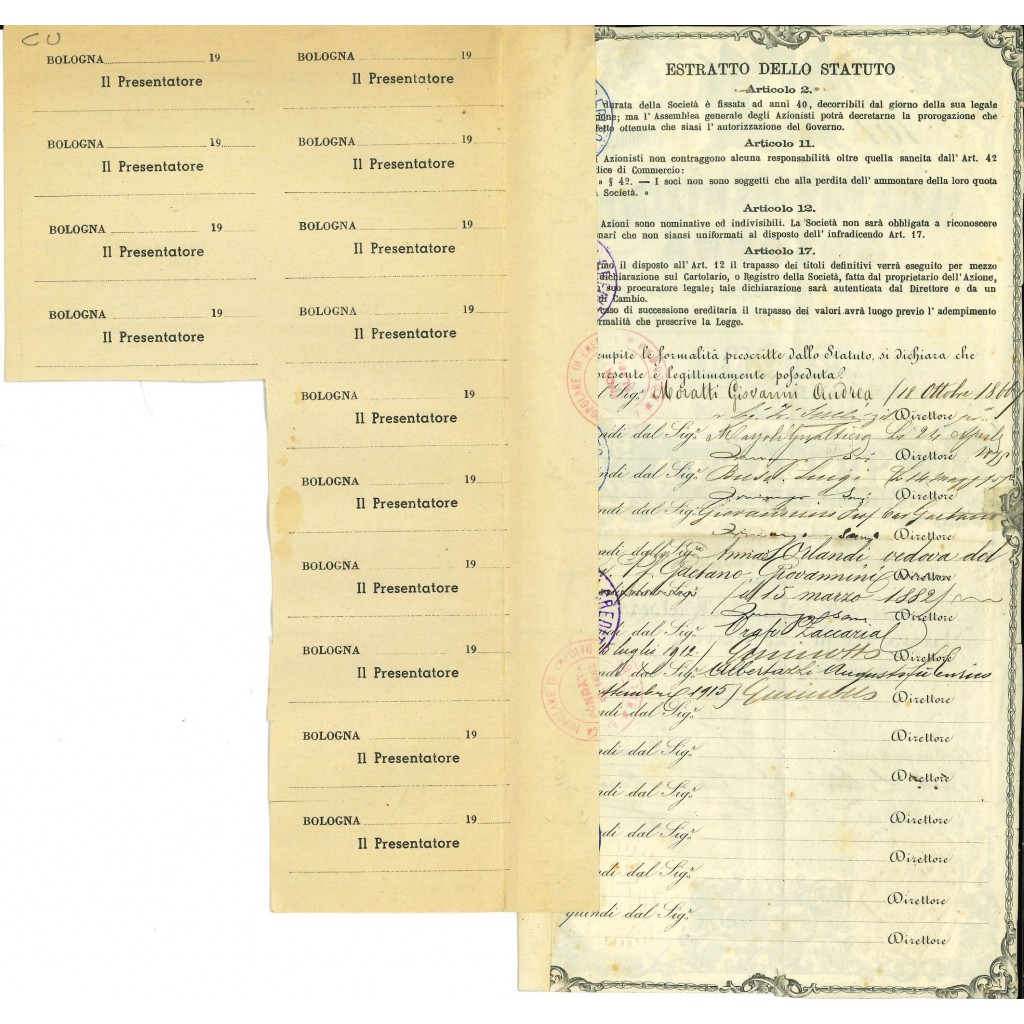 CU
BOLOGNA 19
Il Presentatore
BOLOGNA 19
Il Presentatore
BOLOGNA 19
Il Presentatore
BOLOGNA 19
Il Presentatore
BOLOGNA 19
Il Presentatore
BOLOGNA 19
Il Presentatore
BOLOGNA 19
Il Presentatore
BOLOGNA 19
Il Presentatore
BOLOGNA 19
Il Presentatore
BOLOGNA 19
Il Presentatore
BOLOGNA 19
Il Presentatore
BOLOGNA 19
Il Presentatore
BOLOGNA 19
Il Presentatore
BOLOGNA 19
Il Presentatore
ESTRATTO DELLO STATUTO
Articolo 2.
durata della Società è fissata ad anni 40, decorribili dal giorno della sua legale
ione; ma l' Assemblea generale degli Azionisti potrà decretarne la prorogazione che
fetto ottenuta che siasi l' autorizzazione del Governo.
Articolo 11.
Azionisti non contraggono alcuna responsabilità oltre quella sancita dall' Art. 42
dice di Commercio:
» § 42. — I soci non sono soggetti che alla perdita dell' ammontare della loro quota
Società. »
Articolo 12.
Azioni sono nominative ed indivisibili. La Società non sarà obbligata a riconoscere
nari che non siansi uniformati al disposto dell' infradicendo Art. 17.
Articolo 17.
rmo il disposto all' Art. 12 il trapasso dei titoli definitivi verrà eseguito per mezzo
dichiarazione sul Cartolario, o Registro della Società, fatta dal proprietario dell' Azione,
suo procuratore legale; tale dichiarazione sarà autenticata dal Direttore e da un
di Cambio.
caso di successione ereditaria il trapasso dei valori avrà luogo previo l' adempimento
rmalità che prescrive la Legge.
empite le formalità prescritte dallo Statuto, si dichiara che
presente è legittimamente posseduta
Sig.r Moratti Giovanni Andrea (18 Ottobre 1866)
Direttore
ndi dal Sig.r Gualtiero Li 24 Aprile
Direttore
ndi dal Sig.r Luigi
Direttore
ndi dal Sig.r Giovannini Prof Gaetano
Direttore
ndi dal Sig.r Anna Orlandi vedova del
Gaetano Giovannini Direttore
(il 15 marzo 1882)
Direttore
ndi dal Sig.r Zaccaria
luglio 1912) Direttore
ndi dal Sig.r Albertazzi Augusto fu Enrico
ttembre 1915) Direttore
ndi dal Sig.r
Direttore
ndi dal Sig.r
Direttore
ndi dal Sig.r
Direttore
ndi dal Sig.r
Direttore
ndi dal Sig.r
Direttore
quindi dal Sig.r
Direttore